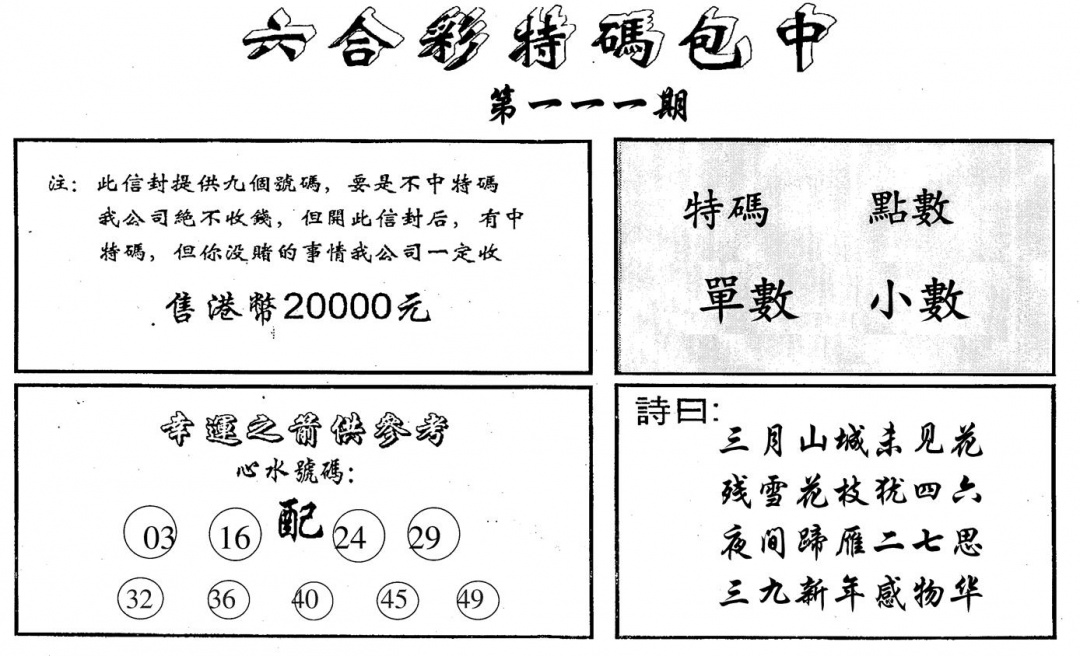 六合彩特碼包中
第一一一期
注：此信封提供九個號碼，要是不中特碼
我公司絕不收錢，但開此信封后，有中
特碼，但你没賭的事情我公司一定收
售港幣20000元
特碼 點數
單數 小數
幸運之箭供參考
心水號碼：
配
03 16 24 29
32 36 40 45 49
詩曰：
三月山城未见花
残雪花枝犹四六
夜间蹄雁二七思
三九新年感物华